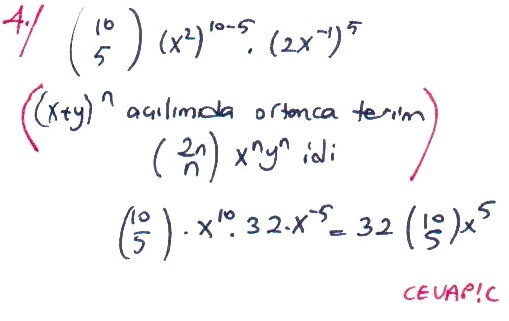 4./ (10 5) (x²)¹⁰⁻⁵. (2x⁻¹)⁵
((x+y)ⁿ açılımıda ortanca terim)
(2n n) xⁿyⁿ idi
(10 5) . x¹⁰. 32.x⁻⁵ = 32 (10 5)x⁵
CEVAP!C